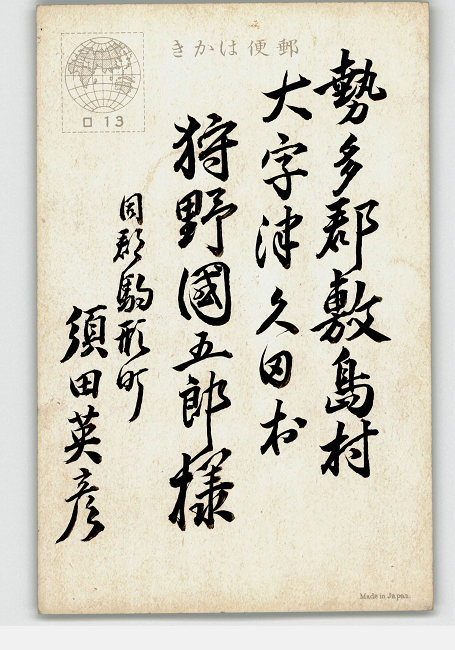 郵便はかき
勢多郡敷島村
大字津久田村
狩野國五郎様
同郡駒形町
須田英彦
ロ 13
Made in Japan.